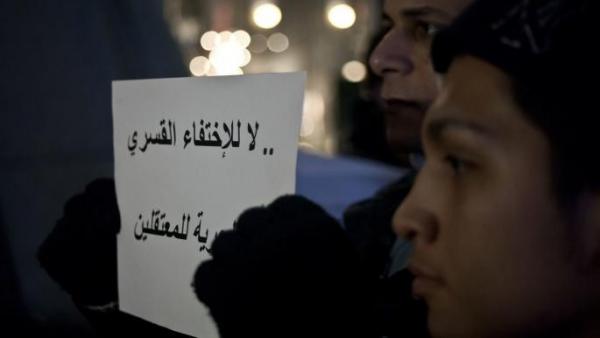 لا للإختفاء القسري ..
للمعتقلين